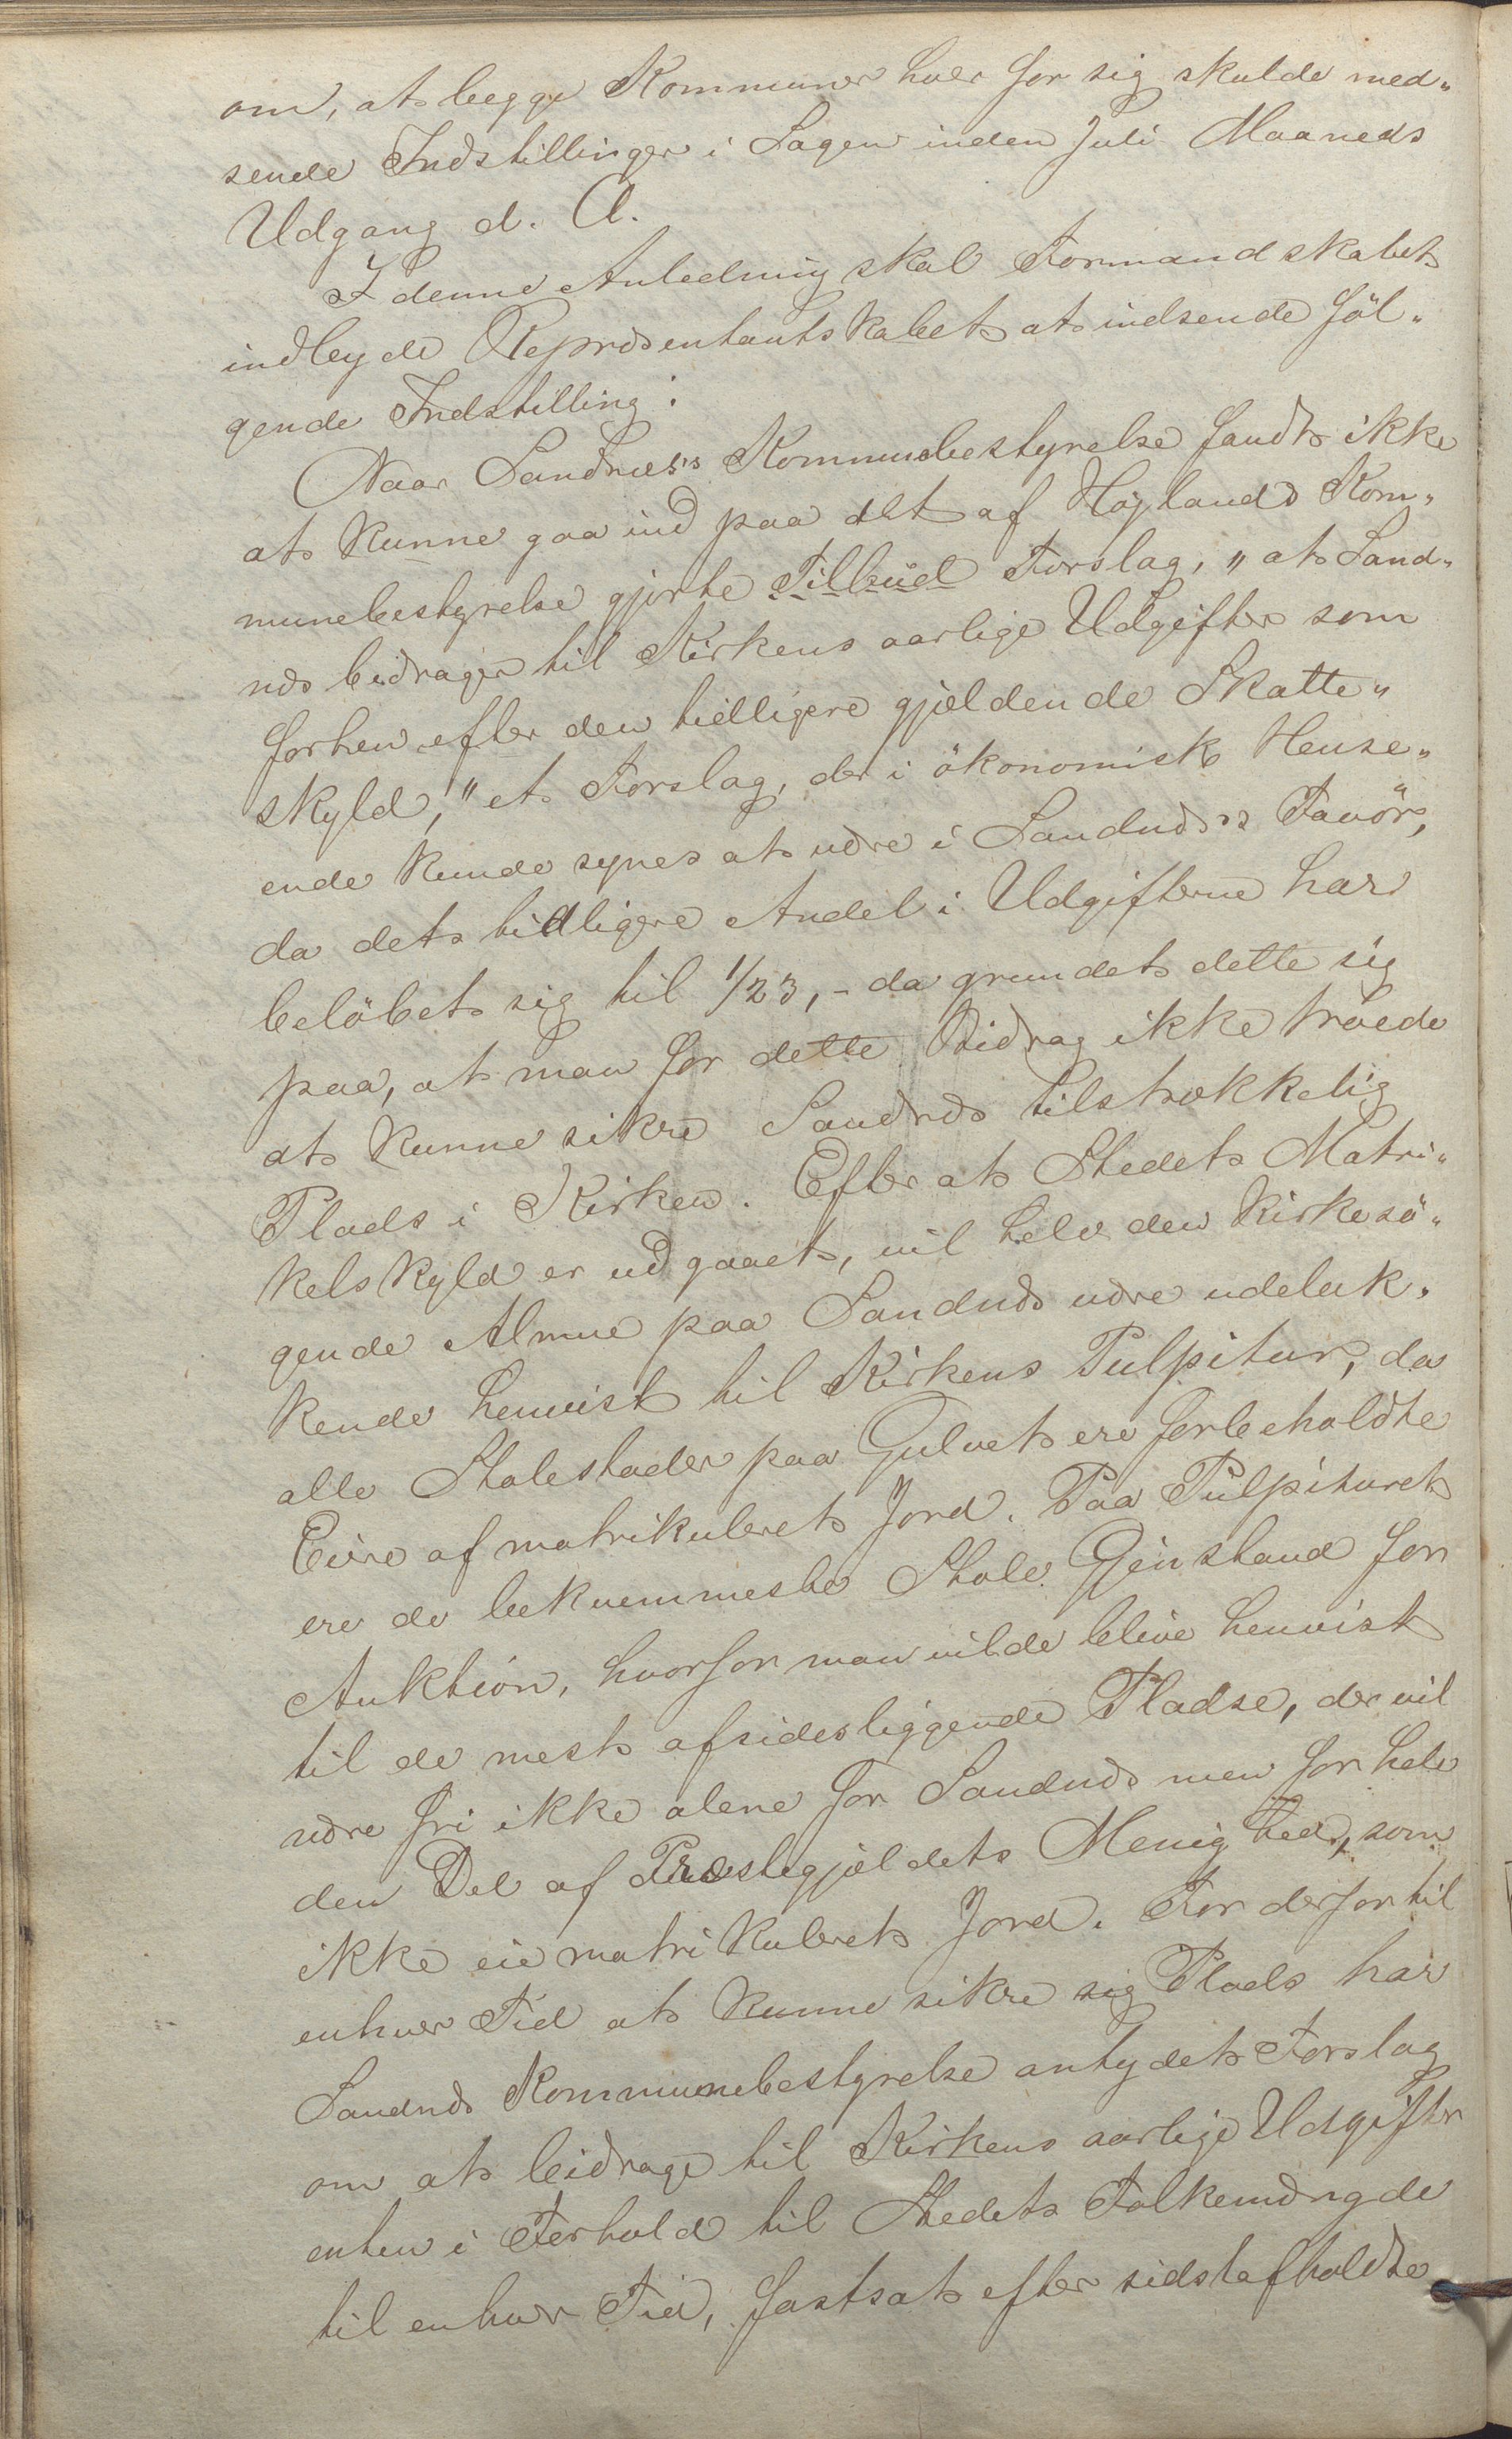 om, at begge Kommuner hver for sig skulde med„
sende Indstillinger i Sagen inden Juli Maaneds
Udgang d. A.
I denne Anledning skal Formandskabet
indbyde Repræsentantskabet at indsende föl„
gende Indstilling:
Naar Sandnæs's Kommunebestyrelse fandt ikke
at kunne gaa ind paa det af Höjlands Kom„
munebestyrelse gjorte Tilbud Forslag, „at Sand„
næs bidrager til Kirkens aarlige Udgifter som
forhen efter den tidligere gjældende Skatte„
skyld,„ et Forslag, der i ökonomisk Hense„
ende kunde synes at være i Sandnæs's Favör,
da dets tidligere Andel i Udgifterne har
belöbet sig til 1/23, – da grundet dette sig
paa, at man for dette Bidrag ikke troede
at kunne sikre Sandnæs tilstrækkelig
Plads i Kirken. Efter at Stedets Matri„
kelskyld er udgaaet, vil hele den kirkesö„
gende Almue paa Sandnæs være udeluk„
kende henvist til Kirkens Pulpitur, da
alle Stolestader paa Gulvet ere forbeholdte
Eiere af matrikuleret Jord. Paa Pulpituret
ere de bekvemmeste Stole Gjenstand for
Auktion, hvorfor man vilde blive henvist
til de mest afsidesliggende Pladse, der vil
være fri ikke alene for Sandnæs men for hele
den Del af Præstegjældets Menighed, som
ikke eie matrikuleret Jord. For derfor til
enhver Tid at kunne sikre sig Plads har
Sandnæs Kommunebestyrelse antydet Forslag
om at bidrage til Kirkens aarlige Udgifter
enten i Forhold til Stedets Folkemængde
til enhver Tid, fastsat efter sidst afholdte